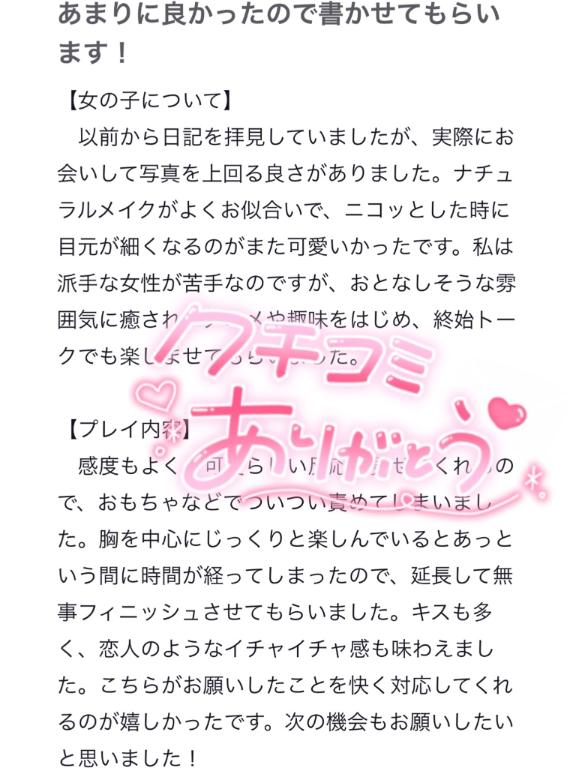 あまりに良かったので書かせてもらい
ます！
【女の子について】
以前から日記を拝見していましたが、実際にお
会いして写真を上回る良さがありました。ナチュ
ラルメイクがよくお似合いで、ニコッとした時に
目元が細くなるのがまた可愛いかったです。私は
派手な女性が苦手なのですが、おとなしそうな雰
囲気に癒され メや趣味をはじめ、終始トー
クでも楽しませてもらいました。
クチコミ
ありがとう
【プレイ内容】
感度もよく 可愛らしい反応 せ くれ の
で、おもちゃなどでついつい責めてしまいまし
た。胸を中心にじっくりと楽しんでいるとあっと
いう間に時間が経ってしまったので、延長して無
事フィニッシュさせてもらいました。キスも多
く、恋人のようなイチャイチャ感も味わえまし
た。こちらがお願いしたことを快く対応してくれ
るのが嬉しかったです。次の機会もお願いしたい
と思いました！